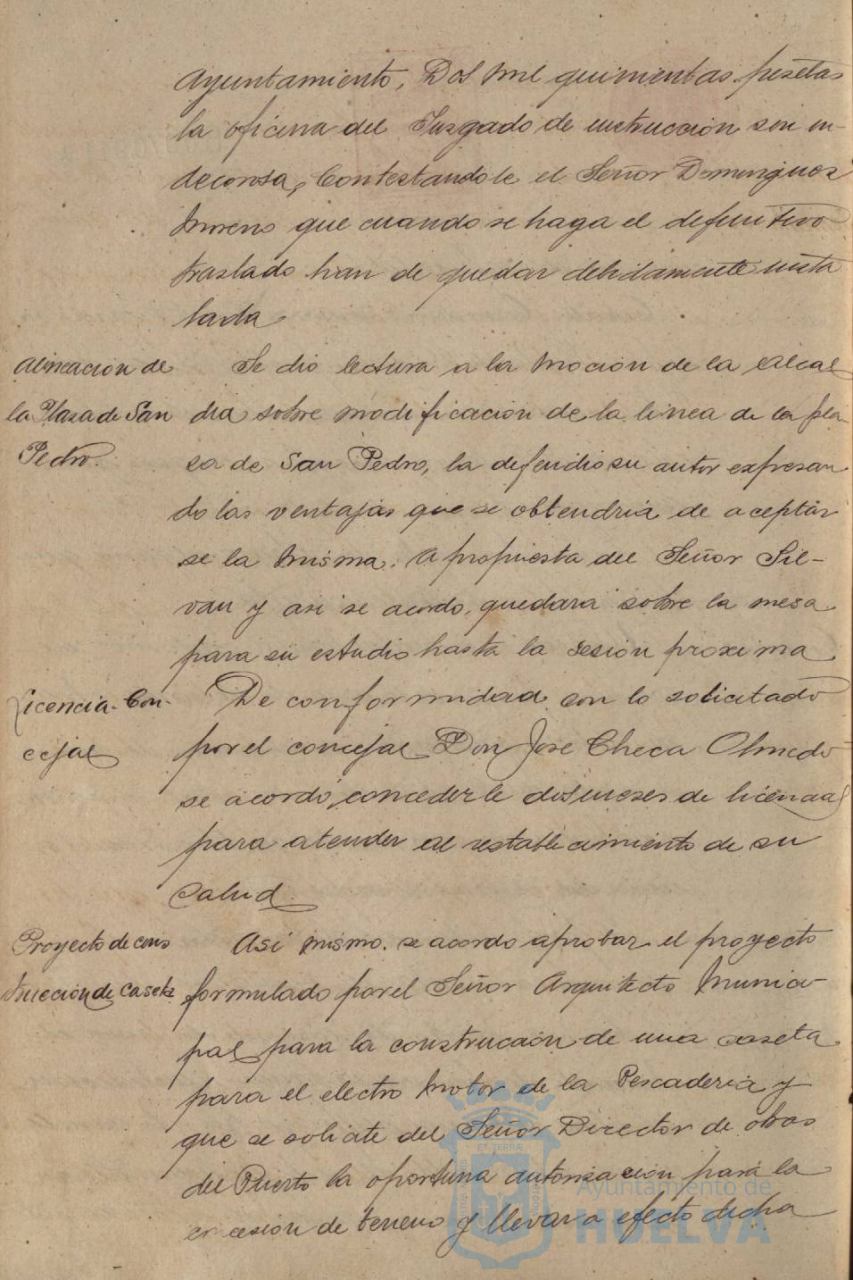 Ayuntamiento, Dos mil quinientas pesetas
la oficina del Juzgado de instrucción son in-
decorosa, Contestandole el Señor Dominguez
Moreno que cuando se haga el definitivo
traslado han de quedar debidamente insta
lada
Alineación de
la Plaza de San
Pedro.
Se dió lectura a la moción de la Alcal
dia sobre modificacion de la linea de la pla-
za de San Pedro, la defendio su autor expresan
do las ventajas que se obtendria de aceptar
se la misma. A propuesta del Señor Sil-
van y asi se acordo, quedara sobre la mesa
para su estudio hasta la sesión proxima
Licencia. Con-
cejal
De conformidad con lo solicitado
por el concejal Don Jose Checa Olmedo
se acordó concederle dos meses de licencia
para atender al restablecimiento de su
Salud.
Proyecto de cons
trucción de caseta
Asi mismo. se acordo aprobar el proyecto
formulado por el Señor Arquitecto Munici-
pal para la construcción de una caseta
para el electro motor de la Pescaderia y
que se solicite del Señor Director de obras
del Puerto la oportuna autorización para la
cesión de terreno y llevar a efecto dicha
Ayuntamiento de
HUELVA